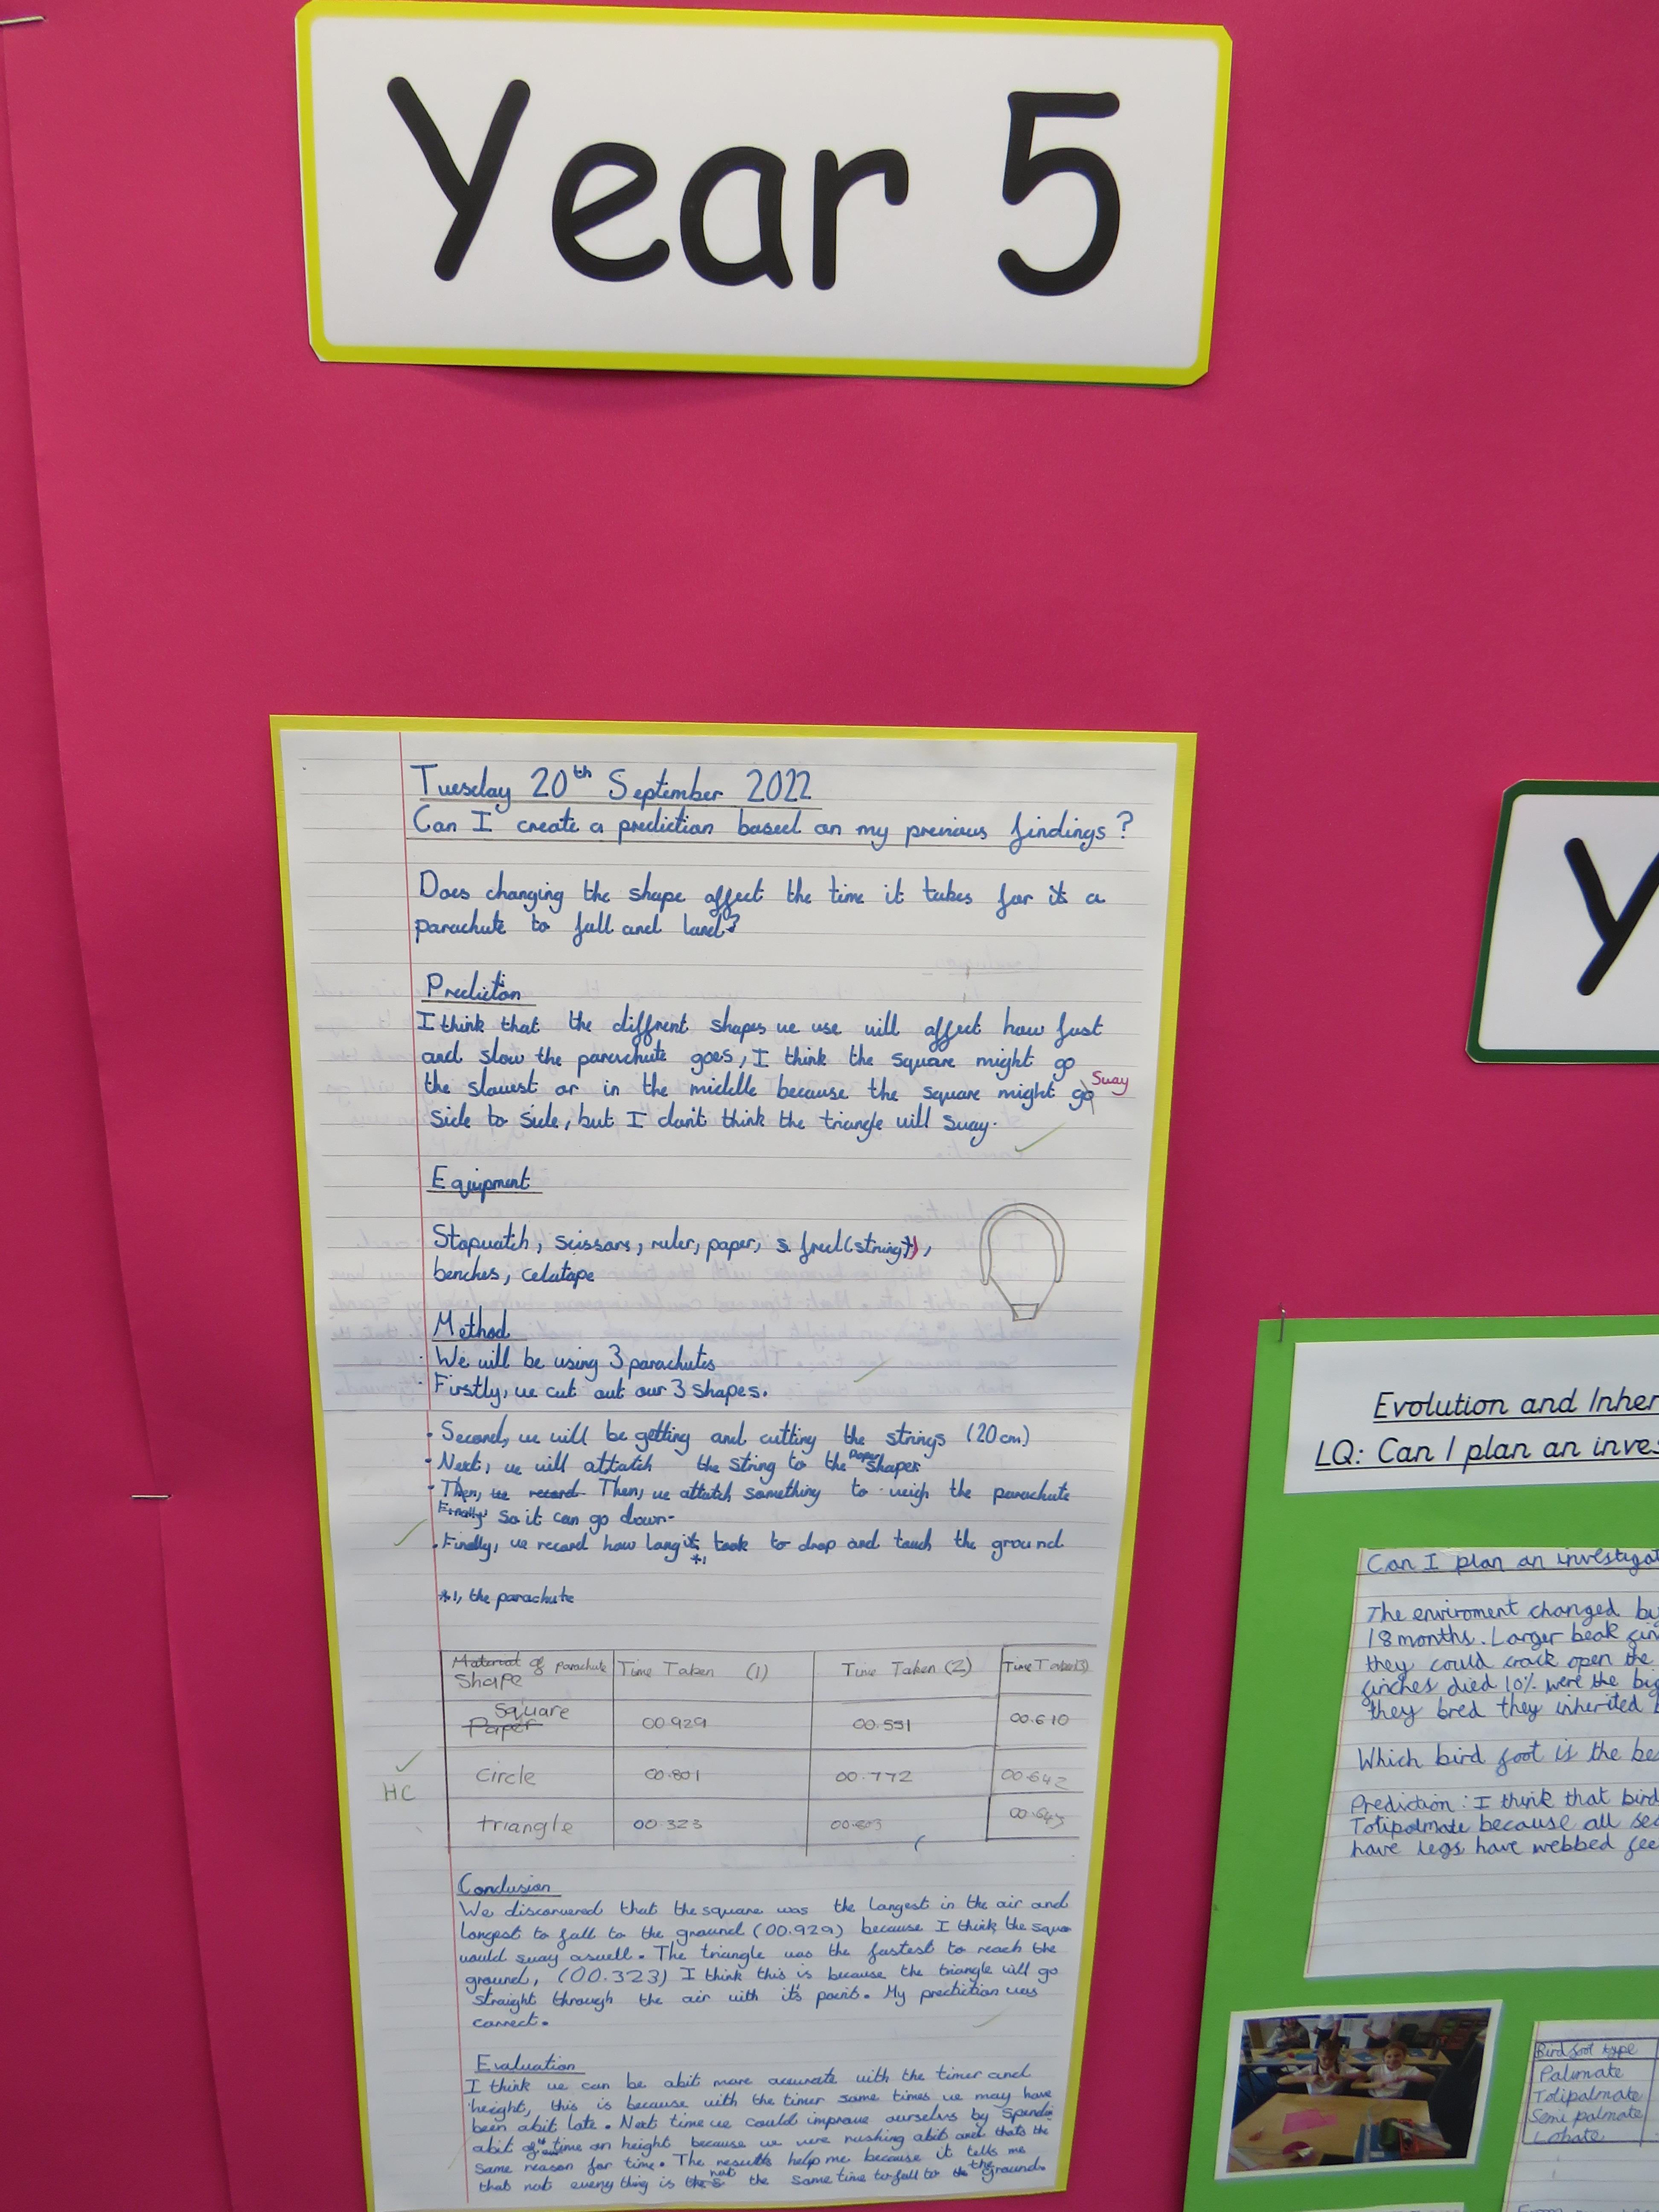 Year 5
Tuesday 20th September 2022
Can I create a prediction based on my previous findings?
Does changing the shape affect the time it takes for it a
parachute to fall and land?
Prediction
I think that the diffrent shapes we use will affect how fast
and slow the parachute goes, I think the square might go
the slowest or in the middle because the square might go sway
side to side, but I don't think the triangle will sway.
Equipment
Stopwatch, scissors, ruler, paper, (string),
benches, celatape
Method
· We will be using 3 parachutes
· Firstly, we cut out our 3 shapes.
· Second, we will be getting and cutting the strings (20cm)
· Next, we will attatch the string to the paper shapes
· Then, we record Then, we attatch something to weigh the parachute
Finally so it can go down.
· Finally, we record how long it *1 took to drop and touch the ground
*1, the parachute
Material of parachute Time Taken (1) Time Taken (2) Time Taken (3)
Shape
Square
Paper 00.929 00.551 00.610
circle 00.801 00.772 00.642
HC
triangle 00.323
Conclusion
We discorvered that the square was the longest in the air and
longest to fall to the ground (00.929) because I think the square
would sway aswell. The triangle was the fastest to reach the
ground, (00.323) I think this is because the triangle will go
straight through the air with it's point. My prediction was
correct.
Evaluation
I think we can be abit more accurate with the timer and
height, this is because with the timer some times we may have
been abit late. Next time we could improve ourselvs by
abit of time on height because we were rushing abit and thats the
same reason for time. The results help me because it tells me
that not every thing is not the same time to fall to the ground.
Y
Evolution and Inher
LQ: Can I plan an inves
Can I plan an investigat
The enviroment changed by
18 months. Larger beak fin
they could crack open the
finches died 10% were the big
they bred they inherited
Which bird foot is the be
Prediction: I think that bird
Totipalmate because all sea
have legs have webbed fee
Bird foot type
Palmate
Totipalmate
Semi palmate
Lobate